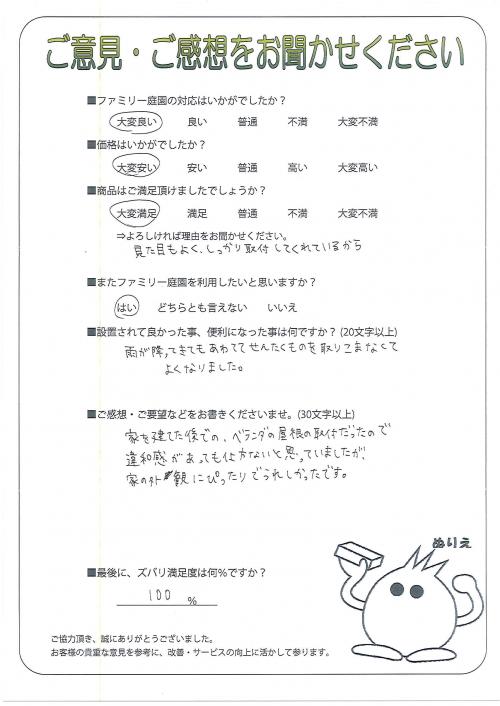 ご意見・ご感想をお聞かせください
■ファミリー庭園の対応はいかがでしたか？
大変良い 良い 普通 不満 大変不満
■価格はいかがでしたか？
大変安い 安い 普通 高い 大変高い
■商品はご満足頂けましたでしょうか？
大変満足 満足 普通 不満 大変不満
⇒よろしければ理由をお聞かせください。
見た目もよく、しっかり取付してくれているから
■またファミリー庭園を利用したいと思いますか？
はい どちらとも言えない いいえ
■設置されて良かった事、便利になった事は何ですか？(20文字以上)
雨が降ってきてもあわててせんたくものを取りこまなくて
よくなりました。
■ご感想・ご要望などをお書きくださいませ。(30文字以上)
家を建てた後での、ベランダの屋根の取付だったので
違和感があっても仕方ないと思っていましたが、
家の外観にぴったりでうれしかったです。
ぬりえ
■最後に、ズバリ満足度は何％ですか？
100 ％
ご協力頂き、誠にありがとうございました。
お客様の貴重な意見を参考に、改善・サービスの向上に活かして参ります。